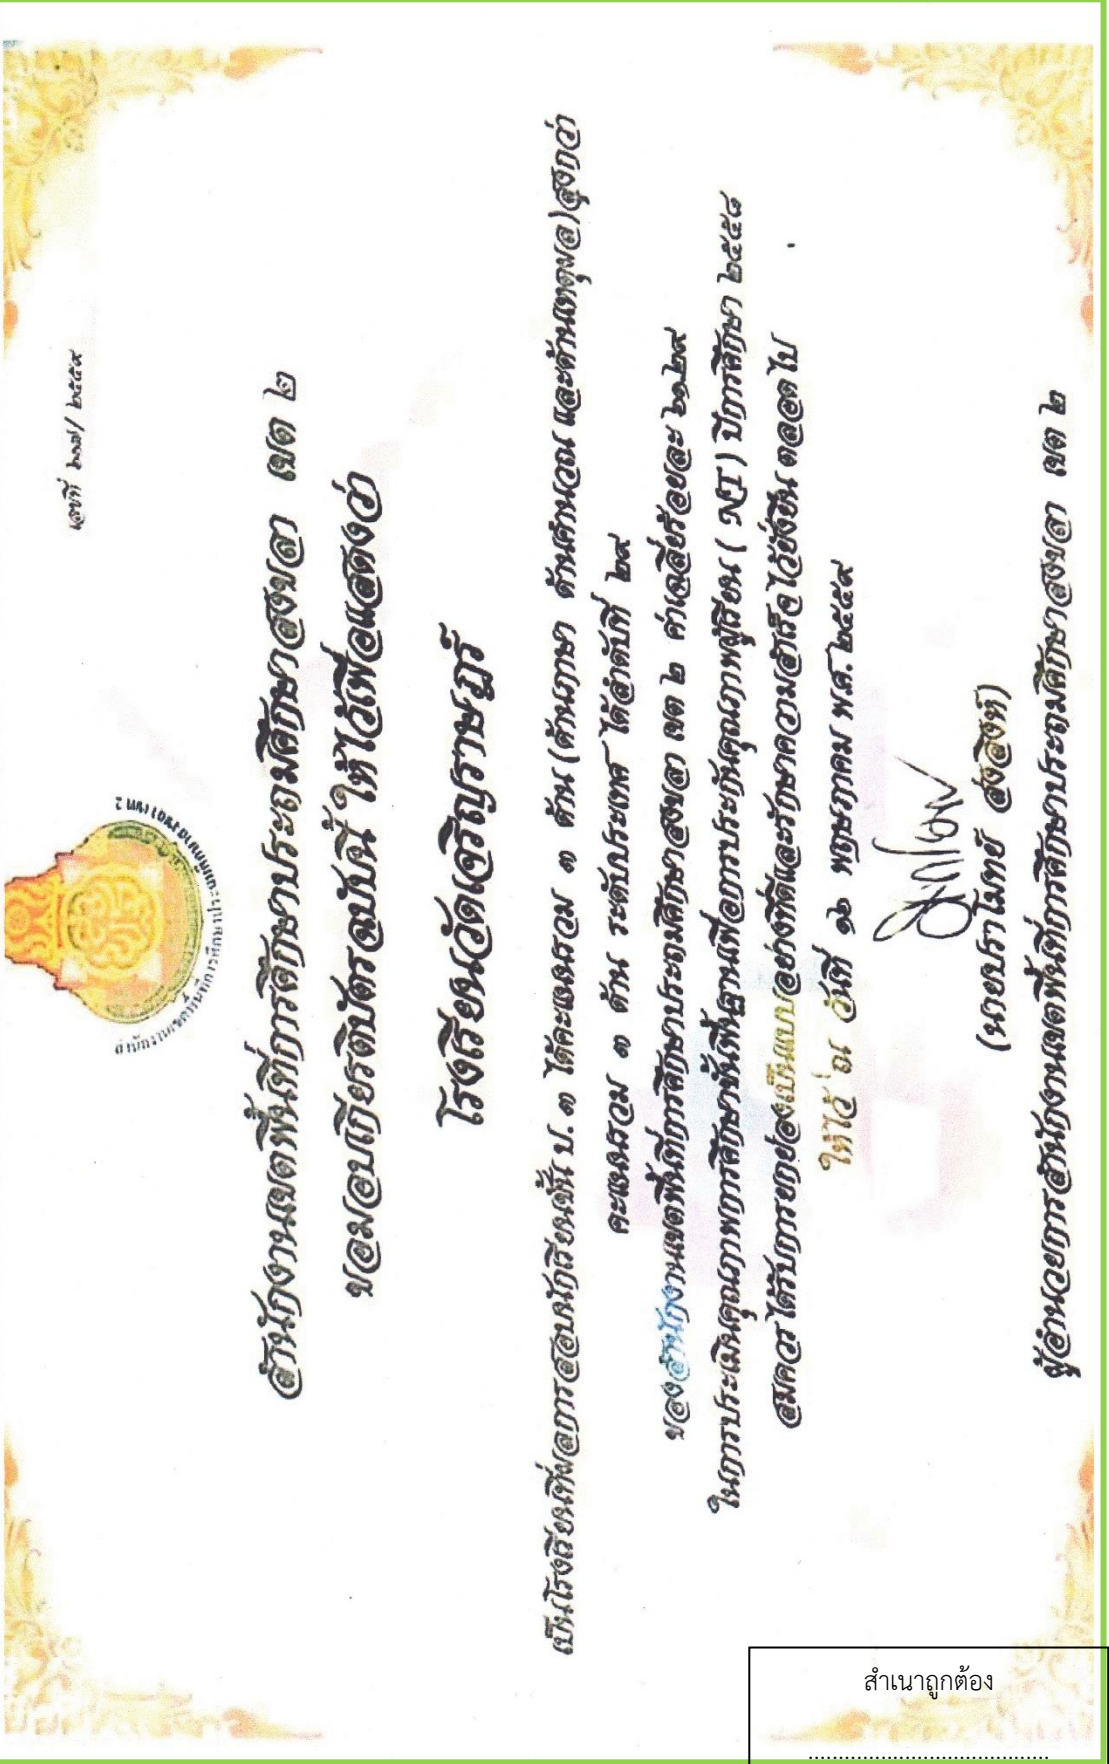 เลขที่ ๒๑๗/ ๒๕๕๙
สำนักงานเขตพื้นที่การศึกษาประถมศึกษาสงขลา เขต 2
สำนักงานเขตพื้นที่การศึกษาประถมศึกษาสงขลา เขต ๒
ขอมอบเกียรติบัตรฉบับนี้ ให้ไว้เพื่อแสดงว่า
โรงเรียนวัดเจริญราษฎร์
เป็นโรงเรียนที่ผลการสอบนักเรียนชั้น ป.๓ ได้คะแนนรวม ๓ ด้าน (ด้านภาษา ด้านคำนวณ และด้านเหตุผล)สูงกว่า
คะแนนรวม ๓ ด้าน ระดับประเทศ ได้ลำดับที่ ๒๙
ของสำนักงานเขตพื้นที่การศึกษาประถมศึกษาสงขลา เขต ๒ ค่าเฉลี่ยร้อยละ
ในการประเมินคุณภาพการศึกษาขั้นพื้นฐานเพื่อการประกันคุณภาพผู้เรียน ( NT ) ปีการศึกษา ๒๕๕๘
สมควรได้รับการยกย่องเป็นแบบอย่างที่ดีและรักษาความสำเร็จไว้ยั่งยืน ตลอดไป
ให้ไว้ ณ วันที่ ๑๒ พฤษภาคม พ.ศ. ๒๕๕๙
(นายปราโมทย์ ส่งสิงห์)
ผู้อำนวยการสำนักงานเขตพื้นที่การศึกษาประถมศึกษาสงขลา เขต ๒
สำเนาถูกต้อง